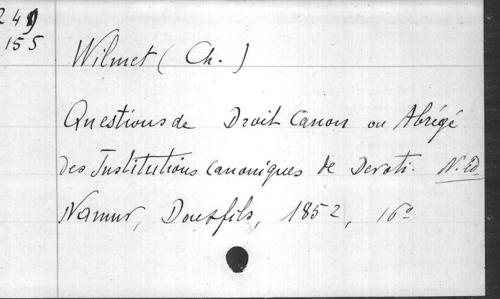 249
155
Wilmet (Ch.)
Questions de Droit Canon ou Abrégé
des Institutions canoniques de Devoti. N. Ed.
Namur, Douxfils, 1852, 16º